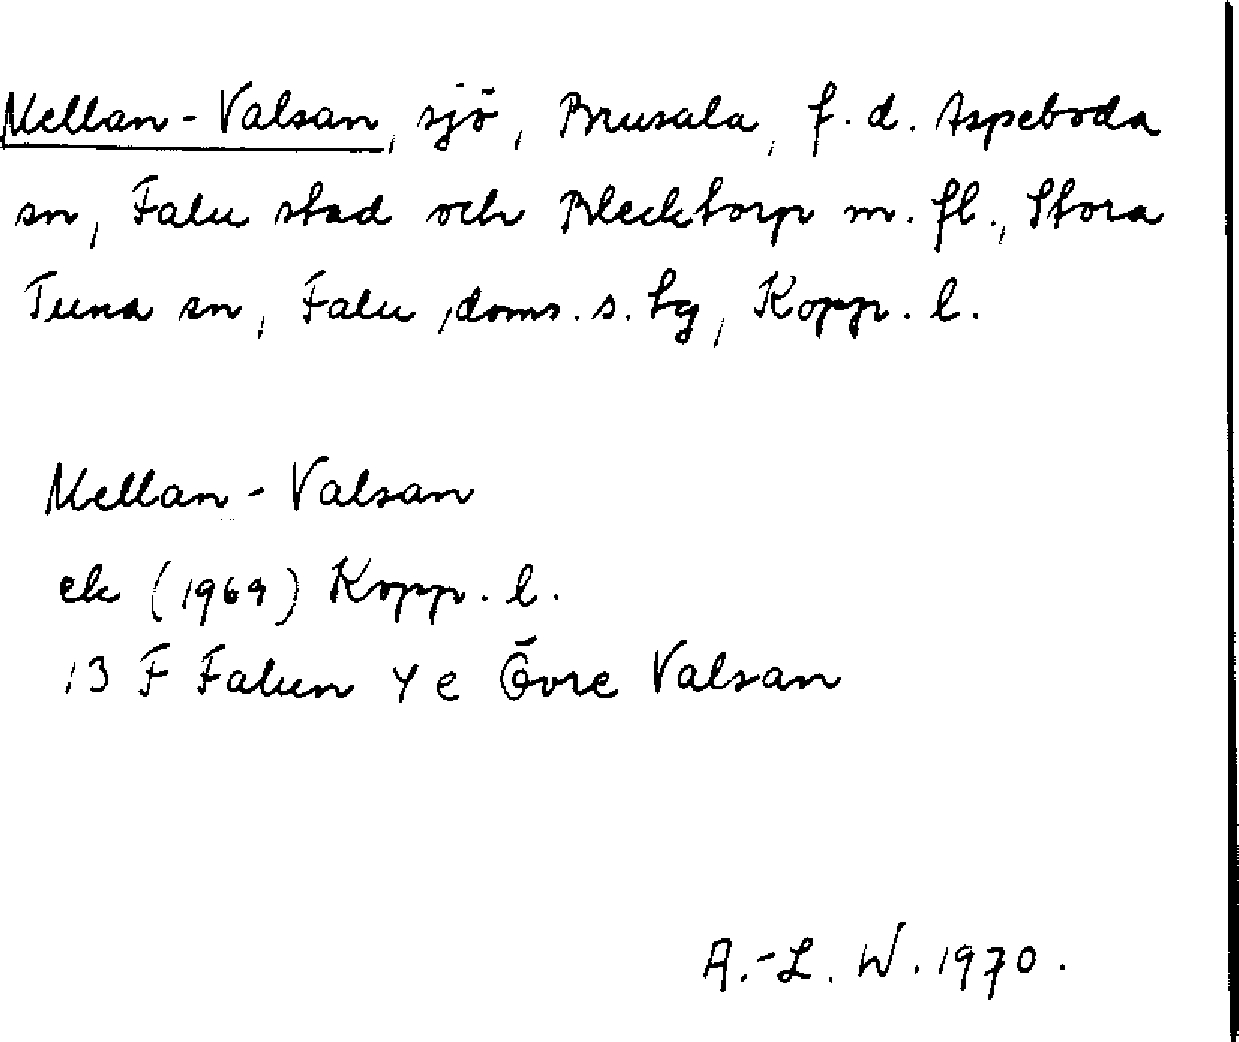 Mellan-Valsan, sjö, Brusala, f.d. Aspeboda
sn, Falu stad och Blecktorp m.fl., Stora
Tuna sn, Falu doms.s. tg, Kopp. l.
Mellan-Valsan
ek (1969) Kopp. l.
13 F Falun 4 e Övre Valsan
A.-L. W. 1970.